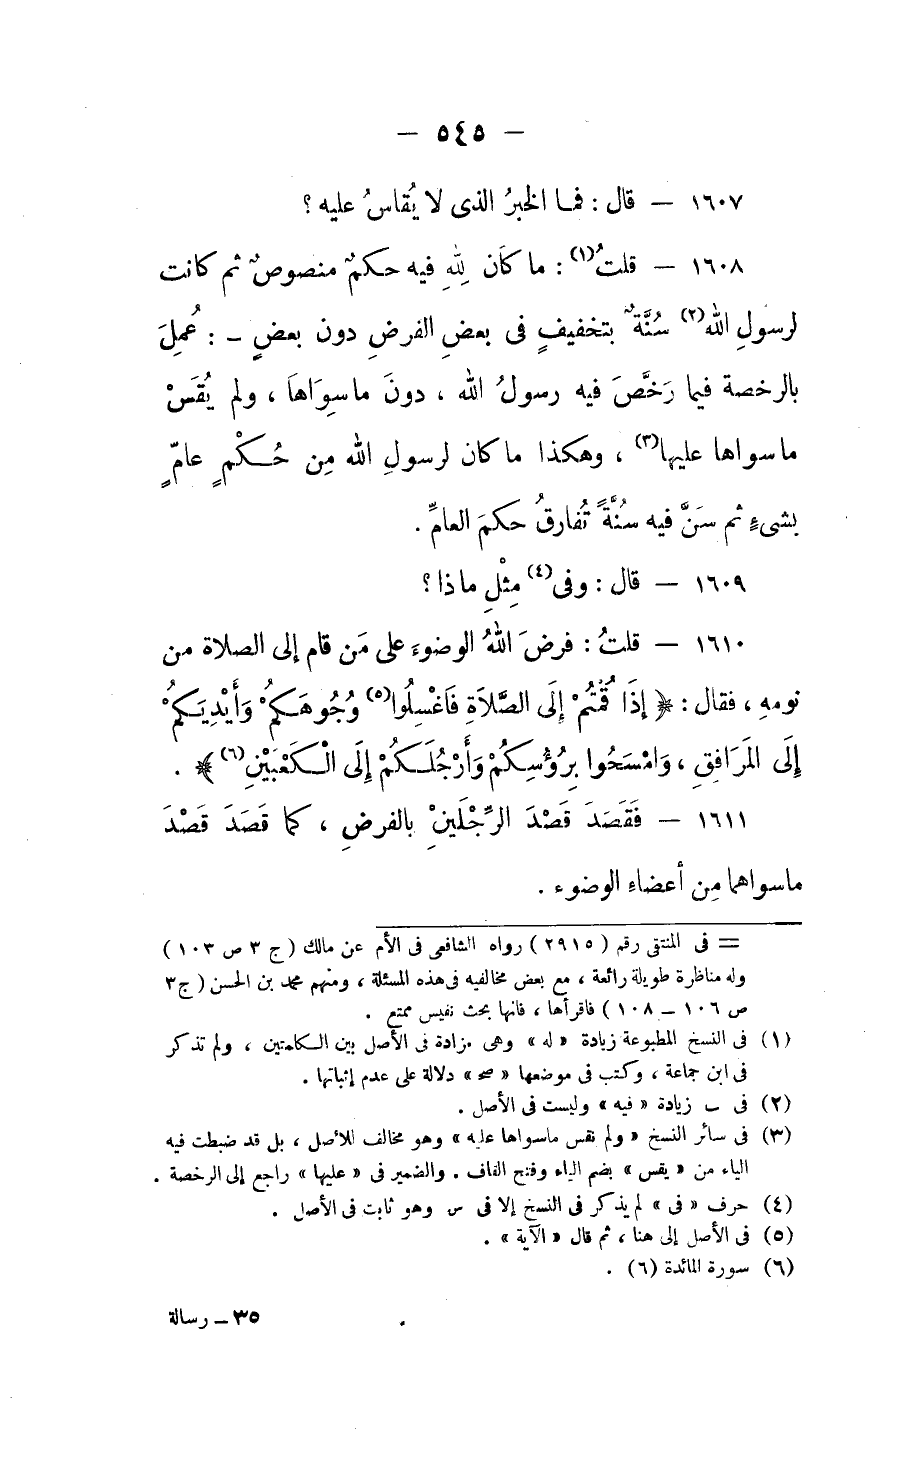 — ٥٤٥ —
١٦٠٧ — قال : فما الخبرُ الذى لا يُقاسُ عليه ؟
١٦٠٨ — قلتُ(١) : ما كَان لِلهِ فيه حكمٌ منصوصٌ ثم كانت
لرسولِ الله(٢) سُنَّةٌ بتخفيفٍ فى بعضِ الفرضِ دون بعضٍ – : عُمِلَ
بالرخصة فيما رَخَّصَ فيه رسولُ الله ، دونَ ماسِوَاهَا ، ولم يُقَسْ
ماسواها عليها(٣) ، وهكذا ما كان لرسولِ الله مِن حُكْمٍ عامٍّ
بشىءٍ ثم سَنَّ فيه سُنَّةً تُفارقُ حكمَ العامِّ .
١٦٠٩ — قال : وفى(٤) مِثْلِ ماذا ؟
١٦١٠ — قلتُ : فرضَ اللهُ الوضوءَ على مَن قام إلى الصلاة من
نومهِ ، فقال : ﴿ إِذَا قُمْتُمْ إِلَى الصَّلاَةِ فَاغْسِلُوا(٥) وُجُوهَكُمْ وَأَيْدِيَكُمْ
إِلَى المَرَافِقِ ، وَامْسَحُوا بِرُؤُسِكُمْ وَأَرْجُلَكُمْ إِلَى الْكَعْبَيْنِ(٦) ﴾ .
١٦١١ — فَقَصَدَ قَصْدَ الرِّجْلَينْ بالفرضِ ، كما قَصَدَ قَصْدَ
ماسواهما مِن أعضاءِ الوضوء .
= فى المنتقى رقم ( ٢٩١٥ ) رواه الشافعى فى الأم عن مالك ( ج ٣ ص ١٠٣ )
وله مناظرة طويلة رائعة ، مع بعض مخالفيه فى هذه المسئلة ، ومنهم محمد بن الحسن ( ج ٣
ص ١٠٦ – ١٠٨ ) فاقرأها ، فانها بحث نفيس ممتع .
(١) فى النسخ المطبوعة زيادة « له » وهى مزادة فى الأصل بين الكلمتين ، ولم تذكر
فى ابن جماعة ، وكتب فى موضعها « صح » دلالة على عدم إثباتها .
(٢) فى ب زيادة « فيه » وليست فى الأصل .
(٣) فى سائر النسخ « ولم نقس ماسواها عليه » وهو مخالف للأصل ، بل قد ضبطت فيه
الياء من « يقس » بضم الياء وفتح القاف . والضمير فى « عليها » راجع إلى الرخصة .
(٤) حرف « فى » لم يذكر فى النسخ إلا فى س وهو ثابت فى الأصل .
(٥) فى الأصل إلى هنا ، ثم قال « الآية » .
(٦) سورة المائدة (٦) .
٣٥ – رسالة